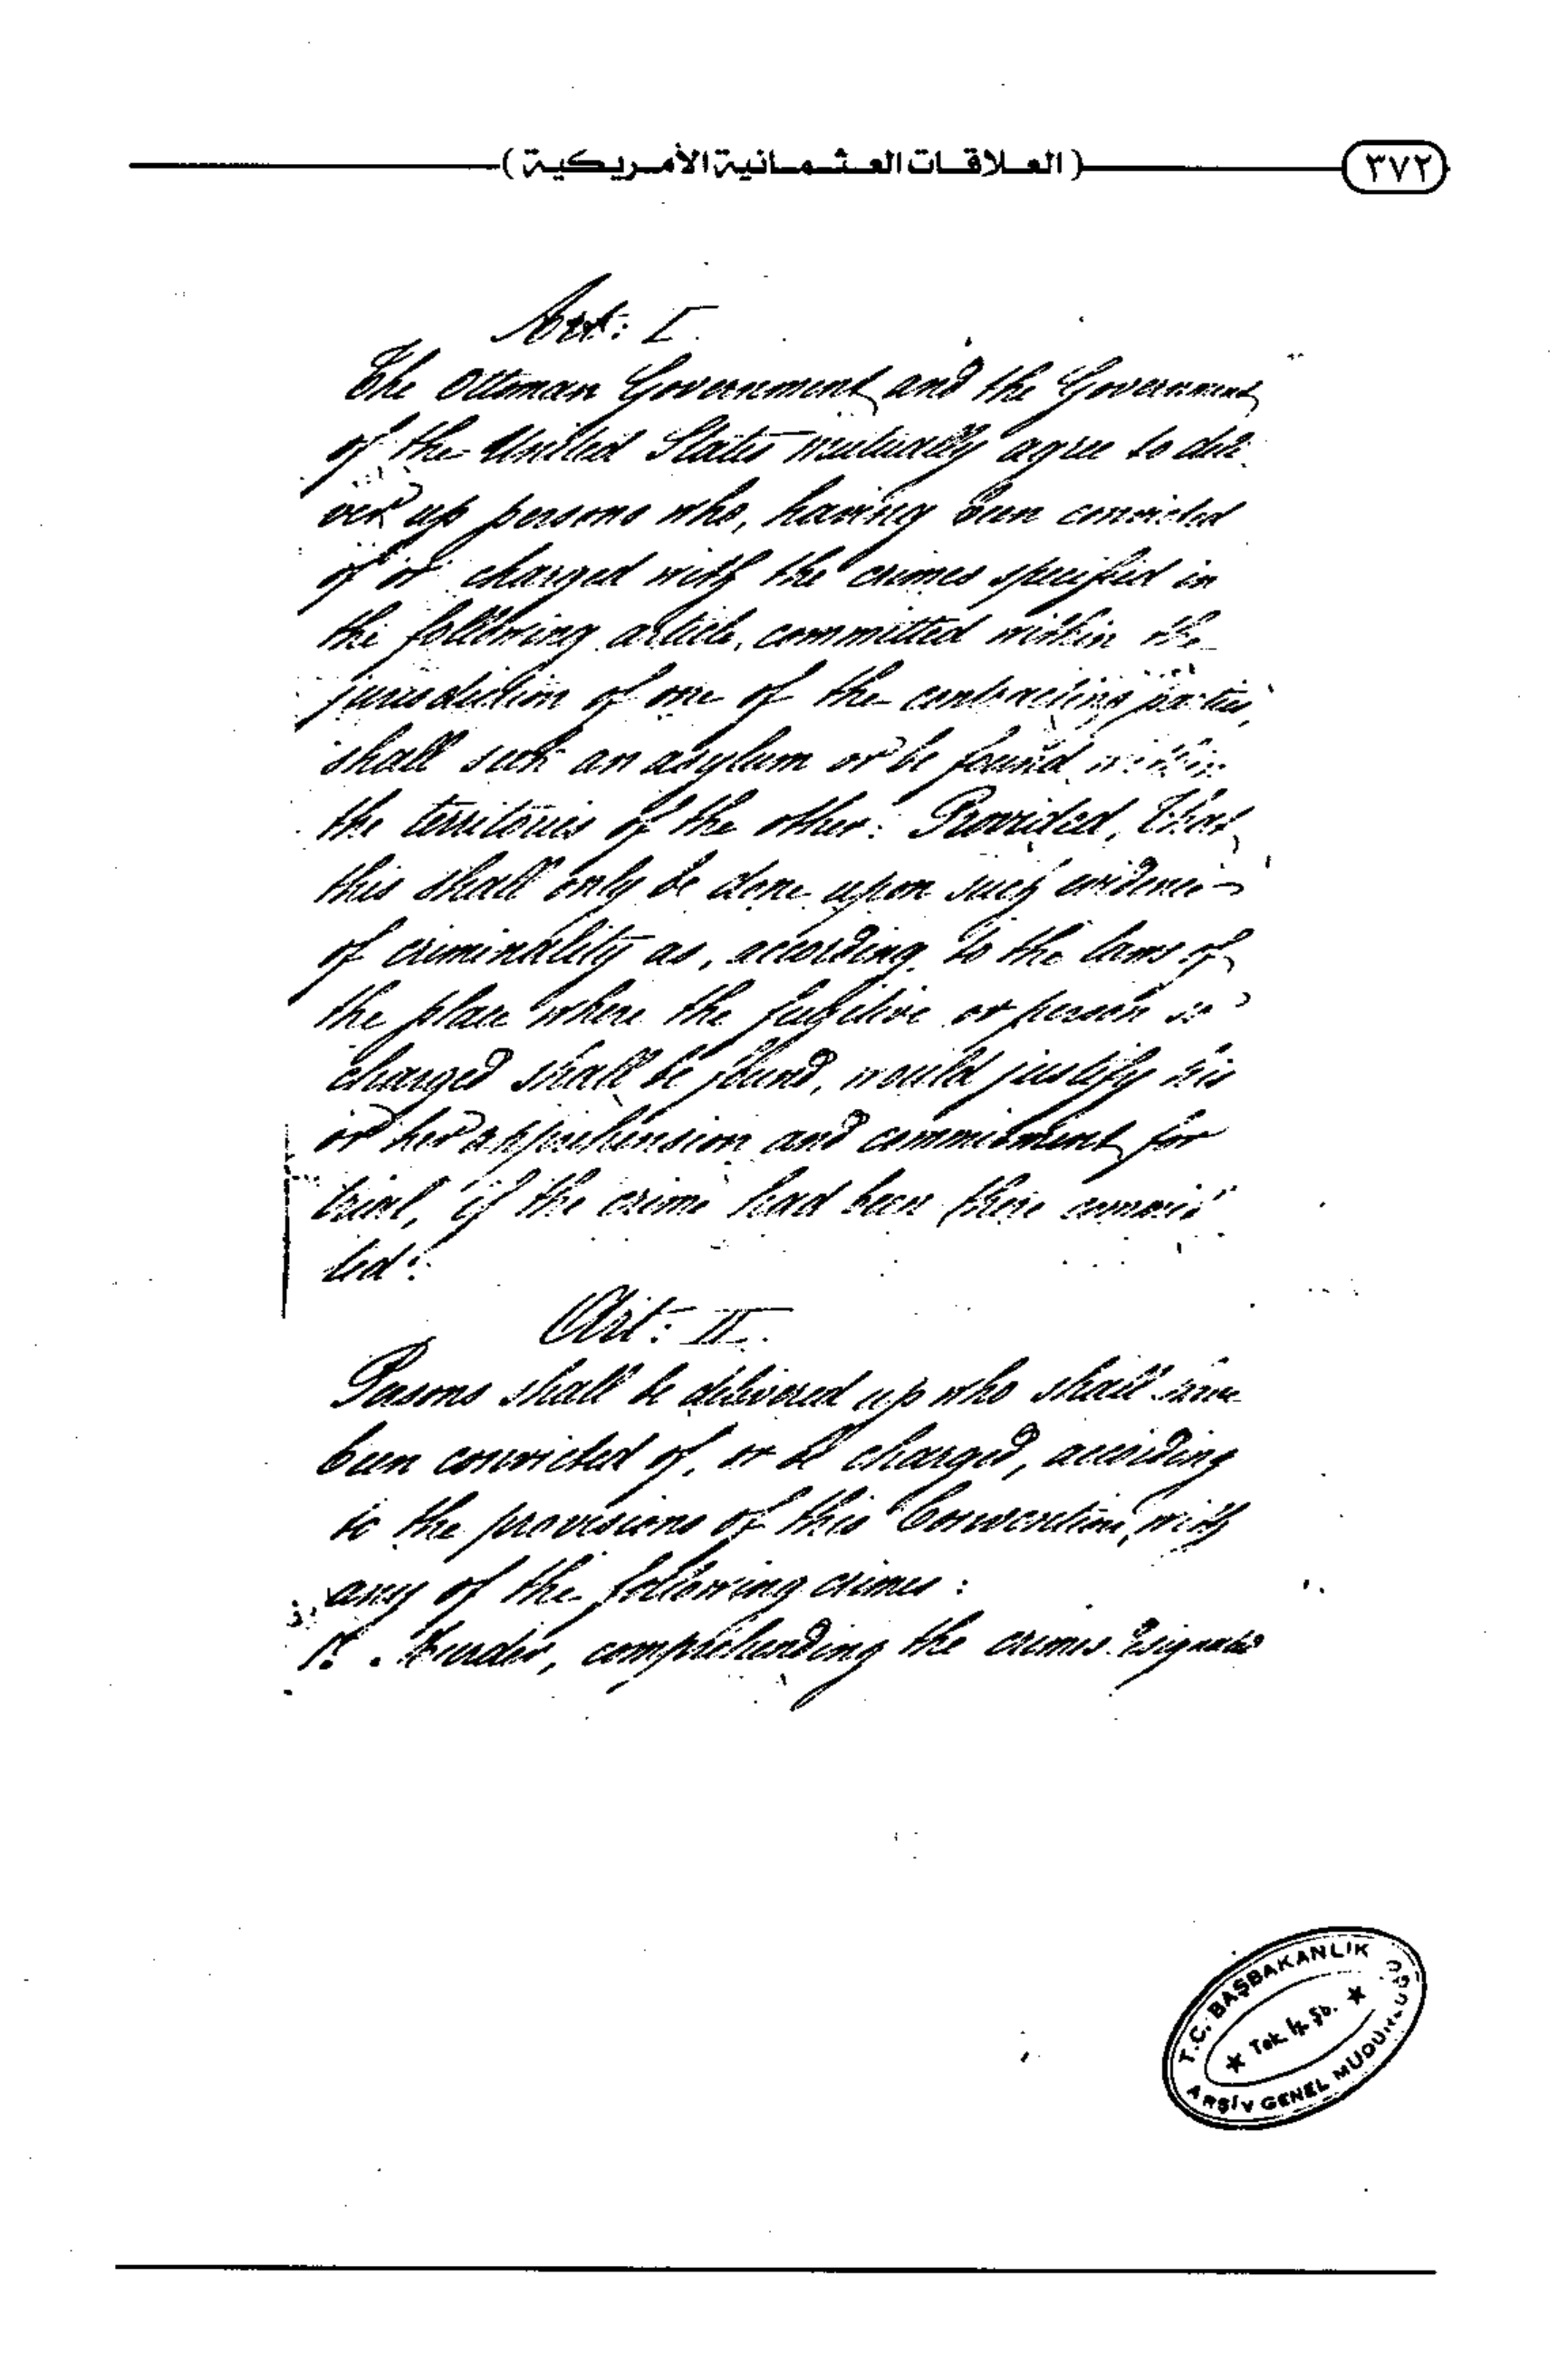 (العلاقات العثمانية الأمريكية)
٣٧٢
Art: I.
The Ottoman Government and the Government
of the United States mutually agree to deli
ver up persons who, having been convicted
of or charged with the crimes specified in
the following article, committed within the
jurisdiction of one of the contracting parties,
shall seek an asylum or be found within
the territories of the other: Provided, That
this shall only be done upon such evidence
of criminality as, according to the laws of
the place where the fugitive or person so
charged shall be found, would justify his
or her apprehension and commitment for
trial, if the crime had been there commit
ted:
Art: II.
Persons shall be delivered up who shall have
been convicted of, or be charged, according
to the provisions of this Convention, with
any of the following crimes:
1º. Murder, comprehending the crimes designated
T.C. BAŞBAKANLIK
★ Tek. ★
ARŞİV GENEL MÜDÜRLÜĞÜ